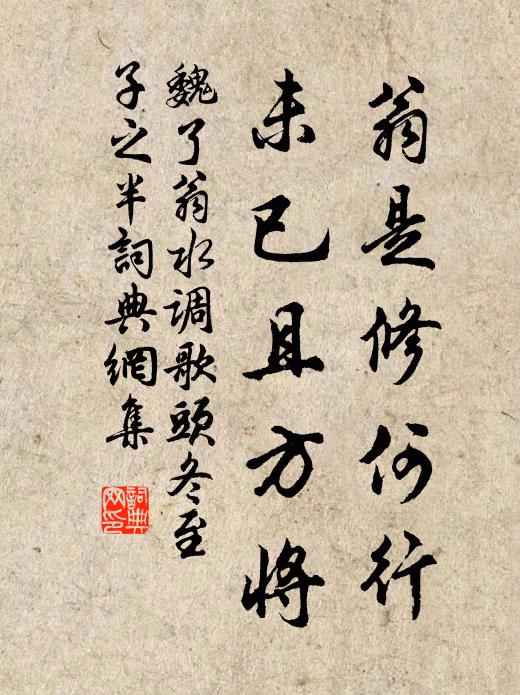 翁是修何行
未已且方将
魏了翁水调歌頭冬至
子之半詞典網集
詞典
网印